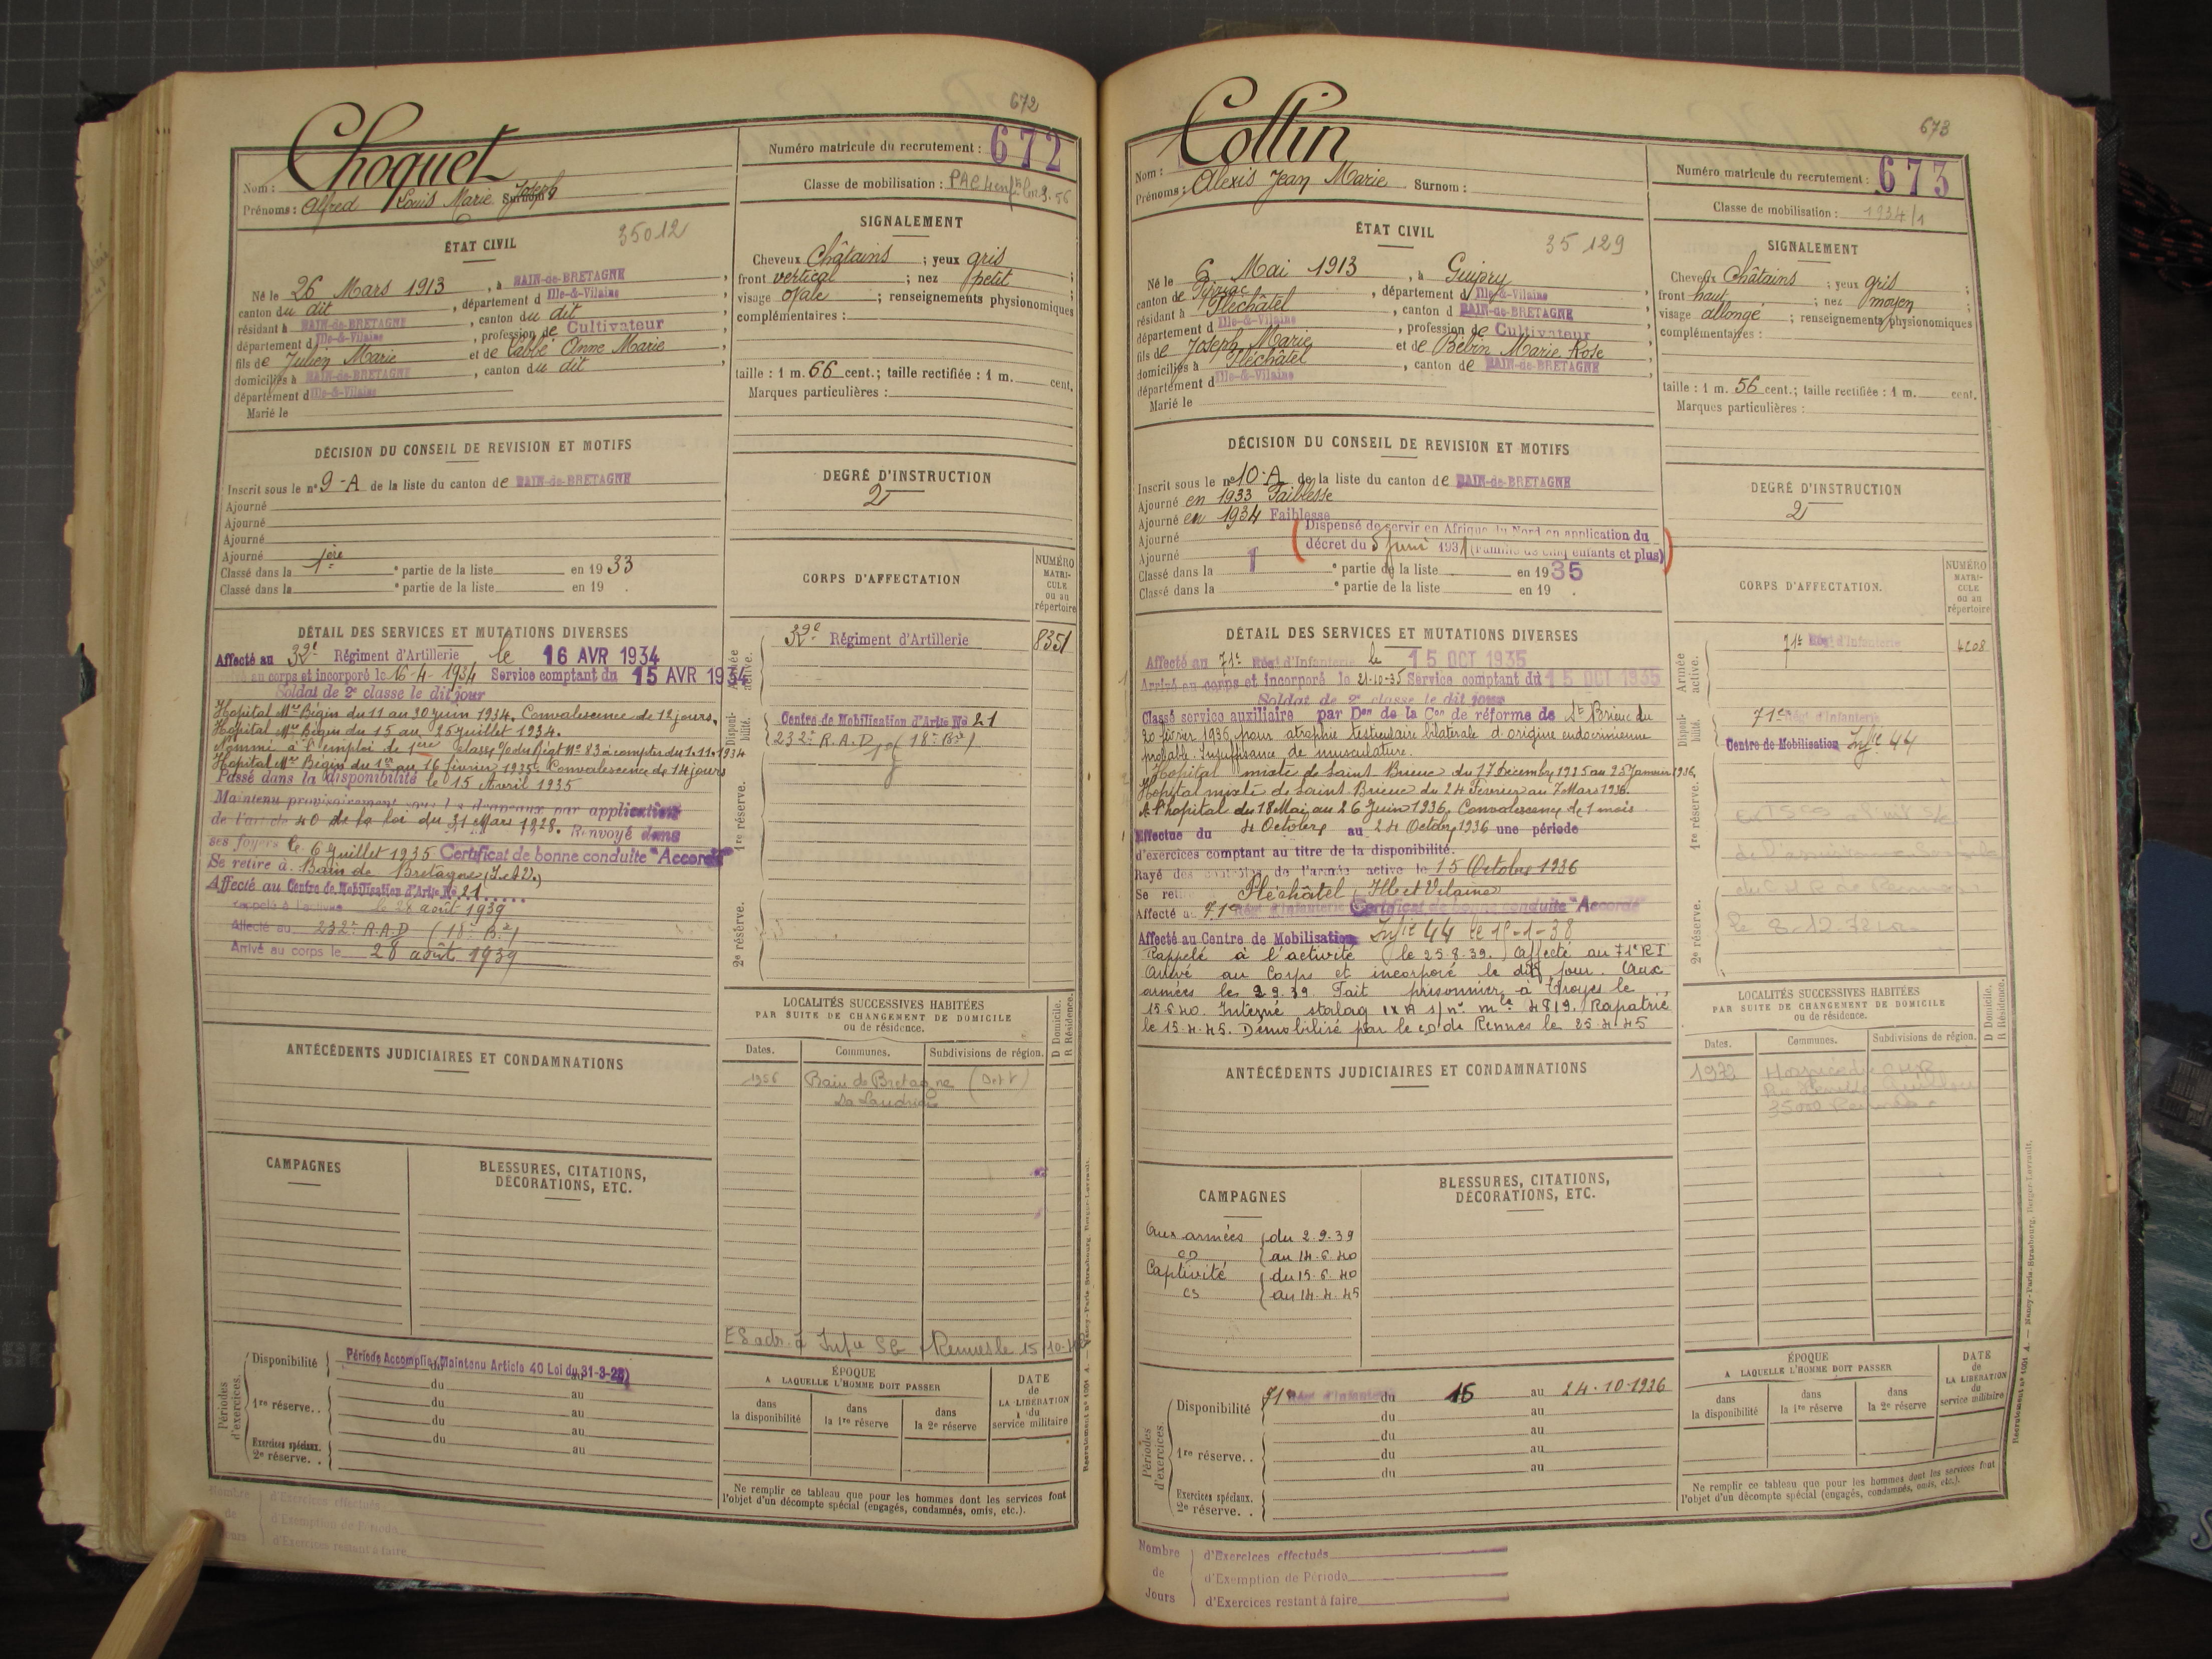 672
Choquet
Nom :
Prénoms : Alfred Louis Marie Joseph Surnom
Numéro matricule du recrutement : 672
Classe de mobilisation :
ÉTAT CIVIL
35012
Né le 26 Mars 1913, à BAIN-de-BRETAGNE,
canton du dit, département d Ille-&-Vilaine
résidant à BAIN-de-BRETAGNE, canton du dit,
département d Ille-&-Vilaine, profession de Cultivateur
fils de Julien Marie et de Labbé Anne Marie,
domiciliés à BAIN-de-BRETAGNE, canton du dit,
département d Ille-&-Vilaine
Marié le
SIGNALEMENT
Cheveux Châtains ; yeux gris ;
front vertical ; nez petit ;
visage ovale ; renseignements physionomiques
complémentaires :
taille : 1 m. 66 cent.; taille rectifiée : 1 m. cent.
Marques particulières :
DÉCISION DU CONSEIL DE REVISION ET MOTIFS
Inscrit sous le n° 9-A de la liste du canton de BAIN-de-BRETAGNE
Ajourné
Ajourné
Ajourné
Ajourné
Classé dans la 1ère e partie de la liste en 1933
Classé dans la e partie de la liste en 19 .
DEGRÉ D'INSTRUCTION
2
DÉTAIL DES SERVICES ET MUTATIONS DIVERSES
Affecté au 32e Régiment d'Artillerie le 16 AVR 1934
au corps et incorporé le 16-4-1934 Service comptant du 15 AVR 1934
Soldat de 2e classe le dit jour
Hopital Mre Bégin du 11 au 30 juin 1934. Convalescence de 12 jours.
Hopital Mre Bégin du 15 au 25 juillet 1934.
Nommé à l'emploi de 1ère classe du Régt No 83 à compter du 1.11.1934
Hopital Mre Bégin du 1er au 16 février 1935. Convalescence de 14 jours
Passé dans la disponibilité le 15 Avril 1935
Maintenu provisoirement sous les drapeaux par application
de l'art de 40 de la loi du 31 Mars 1928. Renvoyé dans
ses foyers le 6 juillet 1935 Certificat de bonne conduite "Accordé"
Se retire à Bain de Bretagne (I. et V.)
Affecté au Centre de Mobilisation d'Artie No 21
Rappelé à l'activité le 28 août 1939
Affecté au 232e R.A.D (18e Bie)
Arrivé au corps le 28 août 1939
CORPS D'AFFECTATION
NUMÉRO MATRICULE ou au répertoire
Armée active.
32e Régiment d'Artillerie 8351
Disponibilité.
Centre de Mobilisation d'Artie No 21
232e R.A.D (18e Bie)
1re réserve.
2e réserve.
LOCALITÉS SUCCESSIVES HABITÉES
PAR SUITE DE CHANGEMENT DE DOMICILE
ou de résidence.
D Domicile.
R Résidence.
Dates. Communes. Subdivisions de région.
1956 Bain de Bretagne
ANTÉCÉDENTS JUDICIAIRES ET CONDAMNATIONS
CAMPAGNES
BLESSURES, CITATIONS,
DÉCORATIONS, ETC.
Périodes d'exercices.
Disponibilité Période Accomplie (Maintenu Article 40 Loi du 31-3-28)
du au
1re réserve.. du au
du au
du au
Exercices spéciaux.
2e réserve. .
ÉPOQUE
A LAQUELLE L'HOMME DOIT PASSER
DATE de LA LIBÉRATION du service militaire
dans la disponibilité
dans la 1re réserve
dans la 2e réserve
Ne remplir ce tableau que pour les hommes dont les services font
l'objet d'un décompte spécial (engagés, condamnés, omis, etc.).
Nombre de Jours
d'Exercices effectués
d'Exemption de Période
d'Exercices restant à faire
673
Collin
Nom :
Prénoms : Alexis Jean Marie Surnom :
Numéro matricule du recrutement : 673
Classe de mobilisation : 1934/1
ÉTAT CIVIL
35 129
Né le 6 Mai 1913, à Guipry
canton de Pipriac, département d Ille-&-Vilaine
résidant à Pléchâtel, canton d BAIN-de-BRETAGNE
département d Ille-&-Vilaine, profession de Cultivateur
fils de Joseph Marie et de Bébin Marie Rose
domiciliés à Pléchâtel, canton de BAIN-de-BRETAGNE
département d Ille-&-Vilaine
Marié le
SIGNALEMENT
Cheveux châtains ; yeux gris ;
front haut ; nez moyen ;
visage allongé ; renseignements physionomiques
complémentaires :
taille : 1 m. 56 cent.; taille rectifiée : 1 m. cent.
Marques particulières :
DÉCISION DU CONSEIL DE REVISION ET MOTIFS
Inscrit sous le n° 10-A de la liste du canton de BAIN-de-BRETAGNE
Ajourné en 1933 Faiblesse
Ajourné en 1934 Faiblesse
Dispensé de servir en Afrique du Nord en application du
Ajourné
décret du 5 Juin 1931 (Famille de cinq enfants et plus)
Ajourné
Classé dans la 1 e partie de la liste en 1935
Classé dans la e partie de la liste en 19 .
DEGRÉ D'INSTRUCTION
2
DÉTAIL DES SERVICES ET MUTATIONS DIVERSES
Affecté au 71e Rég. d'Infanterie le 15 OCT 1935
Arrivé au corps et incorporé le 21-10-35 Service comptant du 15 OCT 1935
Soldat de 2e classe le dit jour
Classé service auxiliaire par Don de la Con de réforme de St Brieuc du
20 février 1936 pour atrophie testiculaire bilatérale d'origine endocrinienne
probable. Insuffisance de musculature.
Hopital mixte de Saint Brieuc du 17 Décembre 1935 au 25 Janvier 1936.
Hopital mixte de Saint Brieuc du 24 Février au 7 Mars 1936.
A l'hopital du 18 Mai au 26 Juin 1936. Convalescence de 1 mois
Effectue du 4 Octobre au 24 Octobre 1936 une période
d'exercices comptant au titre de la disponibilité.
Rayé des contrôles de l'armée active le 15 Octobre 1936
Se reti Pléchâtel, Ille et Vilaine
Affecté au 71e Rég. d'Infanterie Certificat de bonne conduite "Accordé"
Affecté au Centre de Mobilisation Infie 44 le 15-1-38
Rappelé à l'activité le 25.8.39. Affecté au 71e RI
Arrivé au Corps et incorporé le dit jour. Aux
armées le 2.9.39. Fait prisonnier à Troyes le
15.6.40. Interné stalag IX A s/ n° mle 4819. Rapatrié
le 15.4.45. Démobilisé par le CD de Rennes le 25.4.45
CORPS D'AFFECTATION.
NUMÉRO MATRICULE ou au répertoire
Armée active.
71e Rég. d'Infanterie 4208
Disponibilité.
71e Rég. d'Infanterie
Centre de Mobilisation Infie 44
1re réserve.
2e réserve.
LOCALITÉS SUCCESSIVES HABITÉES
PAR SUITE DE CHANGEMENT DE DOMICILE
ou de résidence.
D Domicile.
R Résidence.
Dates. Communes. Subdivisions de région.
1972
35000 Rennes
ANTÉCÉDENTS JUDICIAIRES ET CONDAMNATIONS
CAMPAGNES
BLESSURES, CITATIONS,
DÉCORATIONS, ETC.
Aux armées du 2.9.39
CD au 14.6.40
Captivité du 15.6.40
au 14.4.45
Périodes d'exercices.
Disponibilité 71e Rég. d'Infanterie du 15 au 24.10.1936
du au
du au
1re réserve.. du au
du au
Exercices spéciaux.
2e réserve. .
ÉPOQUE
A LAQUELLE L'HOMME DOIT PASSER
DATE de LA LIBÉRATION du service militaire
dans la disponibilité
dans la 1re réserve
dans la 2e réserve
Ne remplir ce tableau que pour les hommes dont les services font
l'objet d'un décompte spécial (engagés, condamnés, omis, etc.).
Nombre de Jours
d'Exercices effectués
d'Exemption de Période
d'Exercices restant à faire